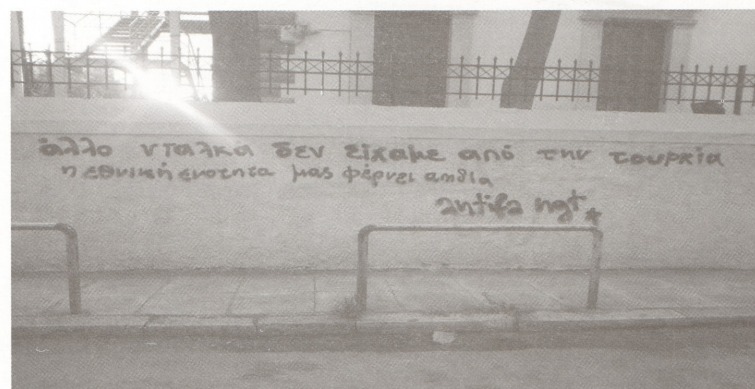 άλλο νταλκα δεν είχαμε από την τουρκία
η εθνική ενοτητα μας φέρνει αηδία
antifa ngt